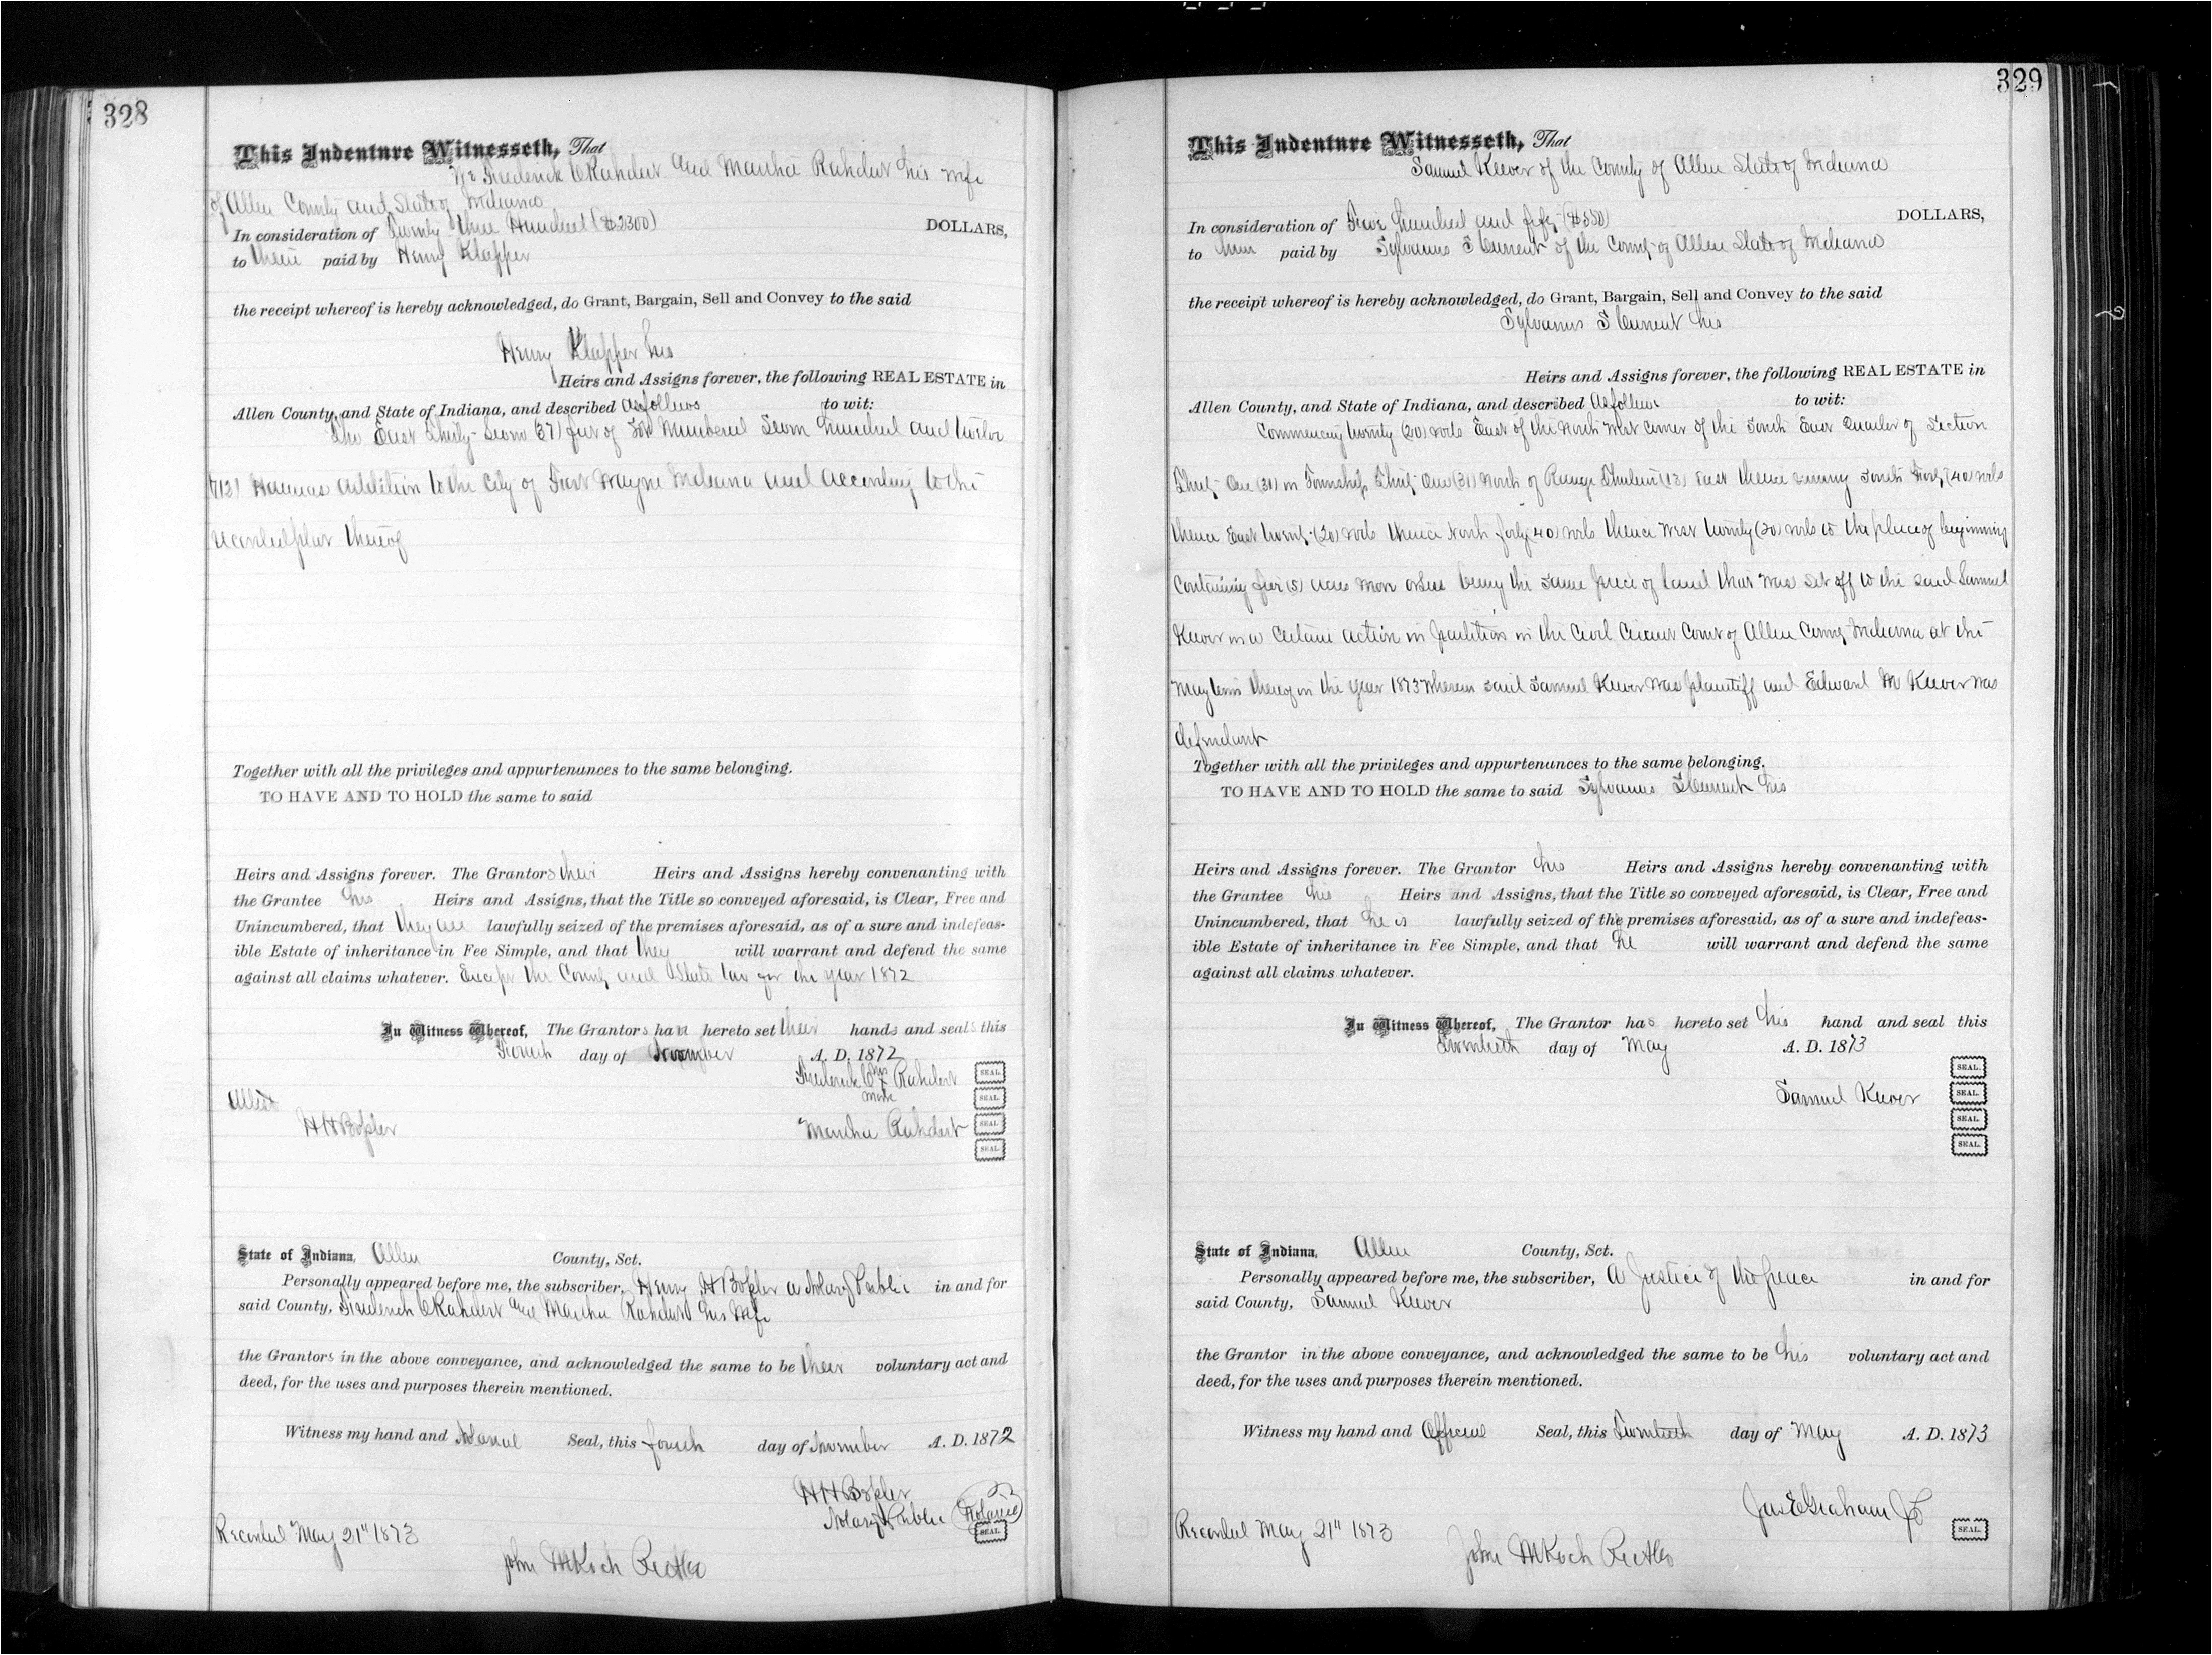 328
This Indenture Witnesseth, That
We Frederick C Rahdert and Marthie Rahdert his wife
of Allen County and State of Indiana
In consideration of Twenty three Hundred ($2300) DOLLARS,
to them paid by Henry Klapper
the receipt whereof is hereby acknowledged, do Grant, Bargain, Sell and Convey to the said
Henry Klapper his
Heirs and Assigns forever, the following REAL ESTATE in
Allen County, and State of Indiana, and described as follows to wit:
The East Thirty-Seven (37) feet of Lot Numbered Seven hundred and twelve
(712) Hannas addition to the City of Fort Wayne Indiana and according to the
recorded plat thereof
Together with all the privileges and appurtenances to the same belonging.
TO HAVE AND TO HOLD the same to said
Heirs and Assigns forever. The Grantors their Heirs and Assigns hereby convenanting with
the Grantee his Heirs and Assigns, that the Title so conveyed aforesaid, is Clear, Free and
Unincumbered, that they are lawfully seized of the premises aforesaid, as of a sure and indefeas-
ible Estate of inheritance in Fee Simple, and that they will warrant and defend the same
against all claims whatever. Except the County and State tax for the year 1872
In Witness Whereof, The Grantors have hereto set their hands and seals this
Fourth day of November A. D. 1872
Frederick C his x Rahdert SEAL.
mark SEAL.
Attest
H H Bossler Marthie Rahdert SEAL.
SEAL.
State of Indiana, Allen County, Sct.
Personally appeared before me, the subscriber, Henry H Bossler a Notary Public in and for
said County, Frederick C Rahdert and Marthie Rahdert his wife
the Grantors in the above conveyance, and acknowledged the same to be their voluntary act and
deed, for the uses and purposes therein mentioned.
Witness my hand and Notarial Seal, this fourth day of November A. D. 1872
H H Bossler
Notary Public (Notarial)
SEAL.
Recorded May 21st 1873
John M Koch Rec A Co
329
This Indenture Witnesseth, That
Samuel Keever of the County of Allen State of Indiana
In consideration of Five hundred and fifty ($550) DOLLARS,
to him paid by Sylvanus F Clement of the County of Allen State of Indiana
the receipt whereof is hereby acknowledged, do Grant, Bargain, Sell and Convey to the said
Sylvanus F Clement his
Heirs and Assigns forever, the following REAL ESTATE in
Allen County, and State of Indiana, and described as follows to wit:
Commencing twenty (20) rods East of the North West corner of the South East Quarter of Section
Thirty-One (31) in Township Thirty One (31) North of Range Thirteen (13) East thence running South Forty (40) rods
thence East twenty (20) rods thence North forty 40) rods thence West twenty (20) rods to the place of beginning
Containing five (5) acres more or less being the same piece of land that was set off to the said Samuel
Keever in a certain action in partition in the Civil Circuit Court of Allen County Indiana at the
May term thereof in the year 1873 wherein said Samuel Keever was plaintiff and Edward M Keever was
defendant
Together with all the privileges and appurtenances to the same belonging.
TO HAVE AND TO HOLD the same to said Sylvanus F Clement his
Heirs and Assigns forever. The Grantor his Heirs and Assigns hereby convenanting with
the Grantee his Heirs and Assigns, that the Title so conveyed aforesaid, is Clear, Free and
Unincumbered, that he is lawfully seized of the premises aforesaid, as of a sure and indefeas-
ible Estate of inheritance in Fee Simple, and that he will warrant and defend the same
against all claims whatever.
In Witness Whereof, The Grantor has hereto set his hand and seal this
Twentieth day of May A. D. 1873
SEAL.
Samuel Keever SEAL.
SEAL.
SEAL.
State of Indiana, Allen County, Sct.
Personally appeared before me, the subscriber, a Justice of the peace in and for
said County, Samuel Keever
the Grantor in the above conveyance, and acknowledged the same to be his voluntary act and
deed, for the uses and purposes therein mentioned.
Witness my hand and Official Seal, this Twentieth day of May A. D. 1873
Jas E Graham JP
SEAL.
Recorded May 21st 1873
John M Koch Rec A Co